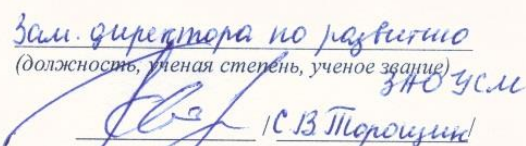 Зам. директора по развитию
(должность, ученая степень, ученое звание)
ЗАО УСМ
/С В Торощин/